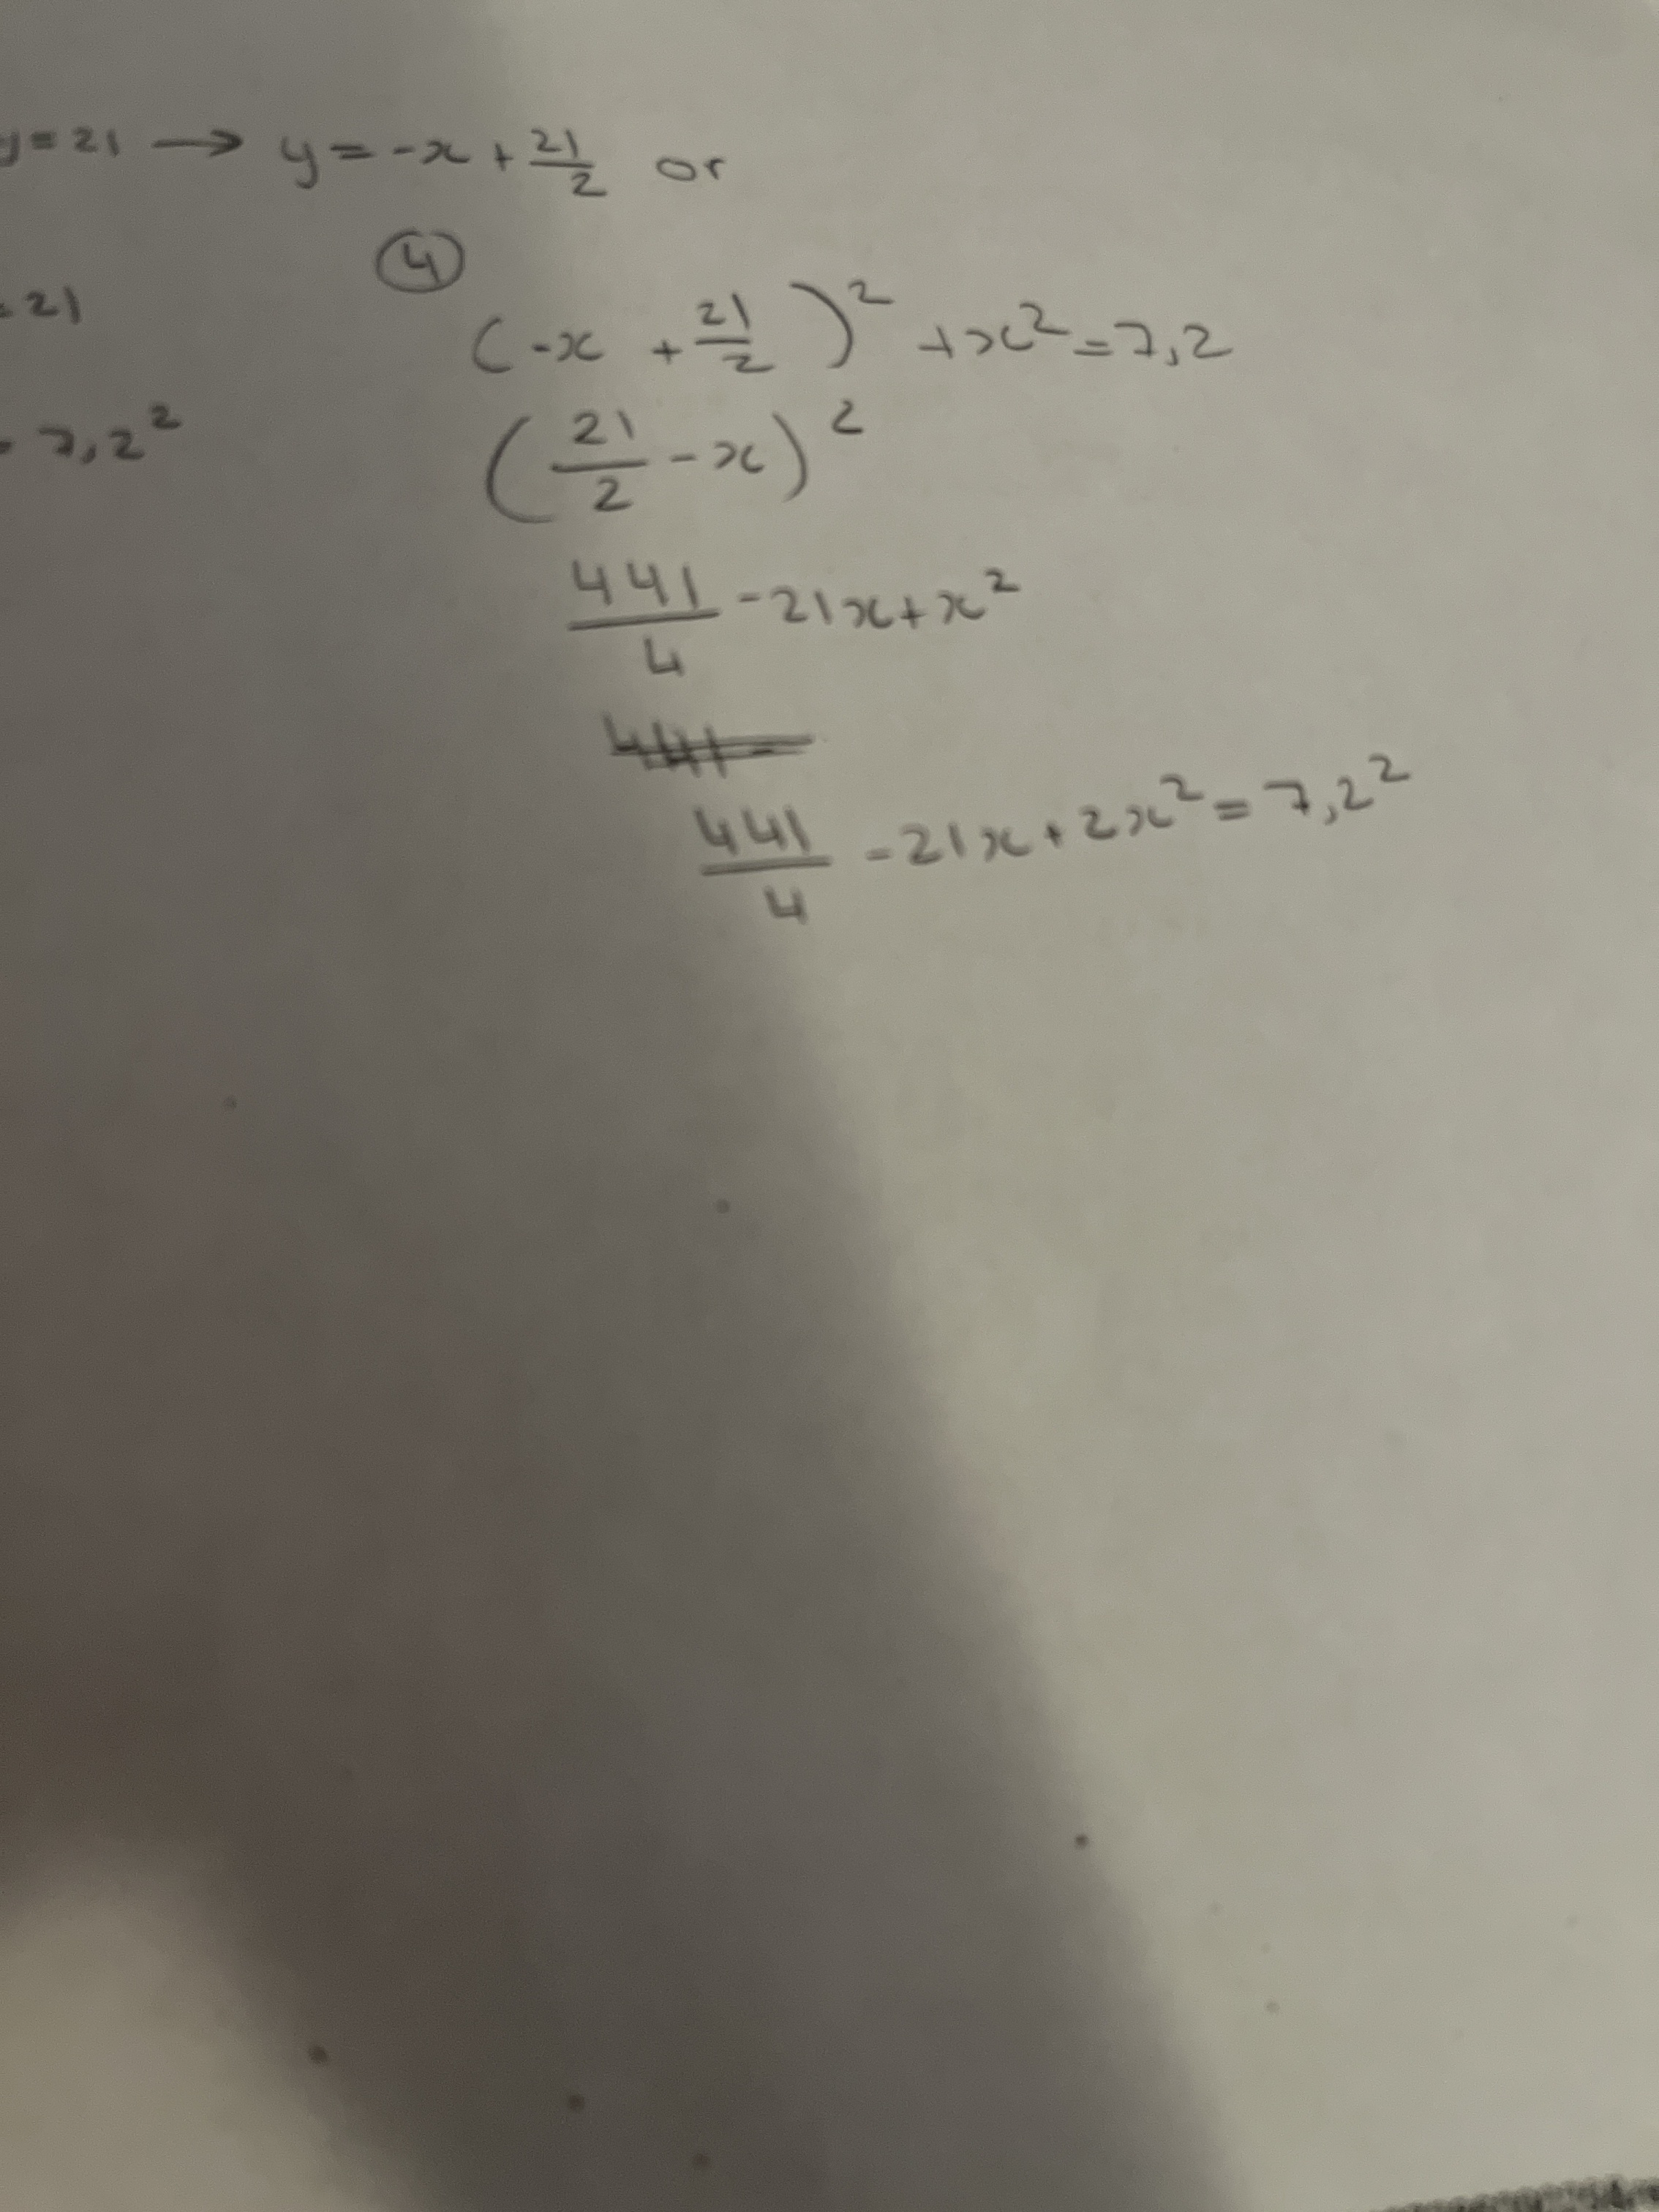 y=21 → y = -x + 21/2 or
④
= 21
(-x + 21/2)² + x² = 7,2
= 7,2²
(21/2 - x)²
441/4 - 21x + x²
441/4 - 21x + 2x² = 7,2²